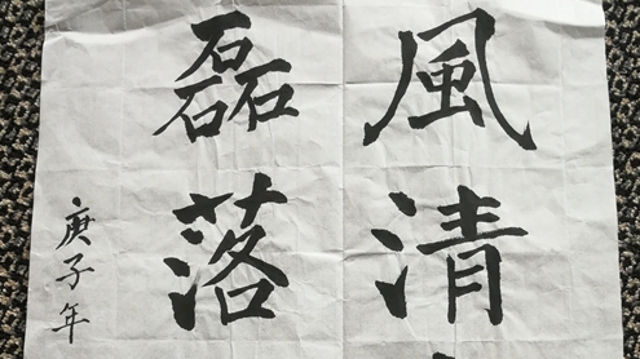 風清
磊落
庚子年